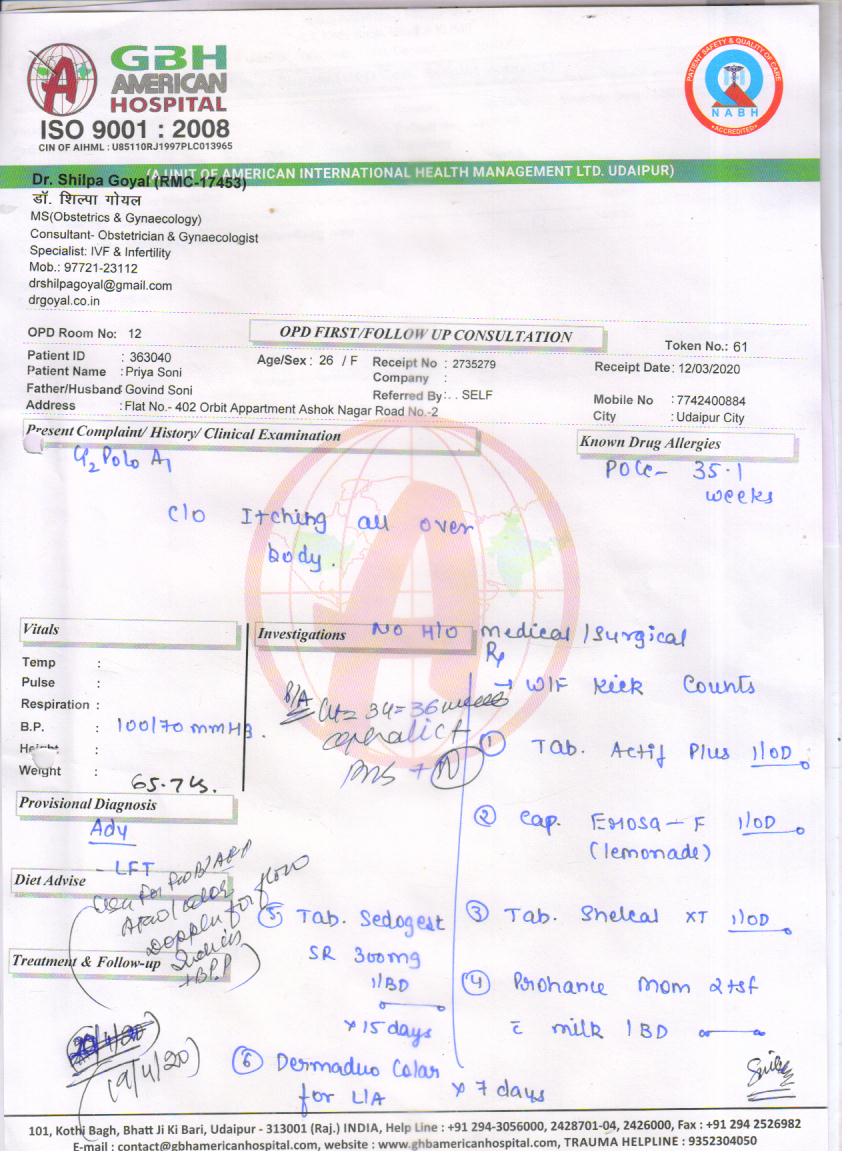 GBH
AMERICAN
HOSPITAL
ISO 9001 : 2008
CIN OF AIHML : U85110RJ1997PLC013965
PATIENT SAFETY & QUALITY OF CARE
NABH
ACCREDITED
(A UNIT OF AMERICAN INTERNATIONAL HEALTH MANAGEMENT LTD. UDAIPUR)
Dr. Shilpa Goyal (RMC-17453)
डॉ. शिल्पा गोयल
MS(Obstetrics & Gynaecology)
Consultant- Obstetrician & Gynaecologist
Specialist: IVF & Infertility
Mob.: 97721-23112
drshilpagoyal@gmail.com
drgoyal.co.in
OPD Room No: 12
OPD FIRST/FOLLOW UP CONSULTATION
Token No.: 61
Patient ID : 363040
Age/Sex : 26 / F
Receipt No : 2735279
Receipt Date: 12/03/2020
Patient Name : Priya Soni
Company :
Father/Husband: Govind Soni
Referred By: . . SELF
Mobile No : 7742400884
Address : Flat No.- 402 Orbit Appartment Ashok Nagar Road No.-2
City : Udaipur City
Present Complaint/ History/ Clinical Examination
Known Drug Allergies
G2P0L0A1
POG- 35.1
weeks
C/O Itching all over
body.
Vitals
Investigations
NO H/O medical/Surgical
Rx
Temp :
Pulse :
Respiration :
B.P. : 100/70 mmHg.
Height :
Weight : 65.7
→ W/F Kick Counts
P/A
34-36 weeks
cephalic
① Tab. Actif Plus 1/OD
② Cap. F 1/OD
(lemonade)
Provisional Diagnosis
Adv
- LFT
Diet Advise
Doppler for flow
Indices
+BPP
Treatment & Follow-up
③ Tab. Shelcal XT 1/OD
④ Prohance Mom 2tsf
c̄ milk 1BD
⑤ Tab. Sedogest
SR 300mg
1/BD
x 15 days
⑥ Dermaduo
for L/A x 7 days
(9/4/20)
101, Kothi Bagh, Bhatt Ji Ki Bari, Udaipur - 313001 (Raj.) INDIA, Help Line : +91 294-3056000, 2428701-04, 2426000, Fax : +91 294 2526982
E-mail : contact@gbhamericanhospital.com, website : www.ghbamericanhospital.com, TRAUMA HELPLINE : 9352304050